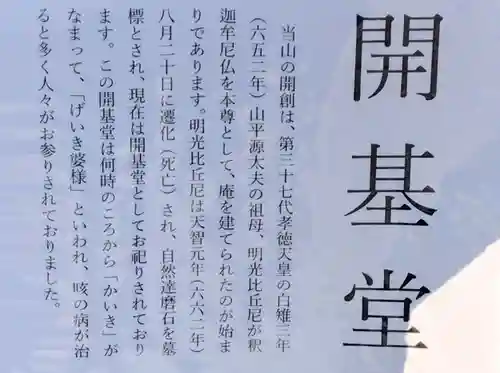 開基堂
当山の開創は、第三十七代孝徳天皇の白雉三年
（六五二年）山平源太夫の祖母、明光比丘尼が釈
迦牟尼仏を本尊として、庵を建てられたのが始ま
りであります。明光比丘尼は天智元年（六六二年）
八月二十日に遷化（死亡）され、自然達磨石を墓
標とされ、現在は開基堂としてお祀りされており
ます。この開基堂は何時のころから「かいき」が
なまって、「げいき婆様」といわれ、咳の病が治
ると多く人々がお参りされておりました。